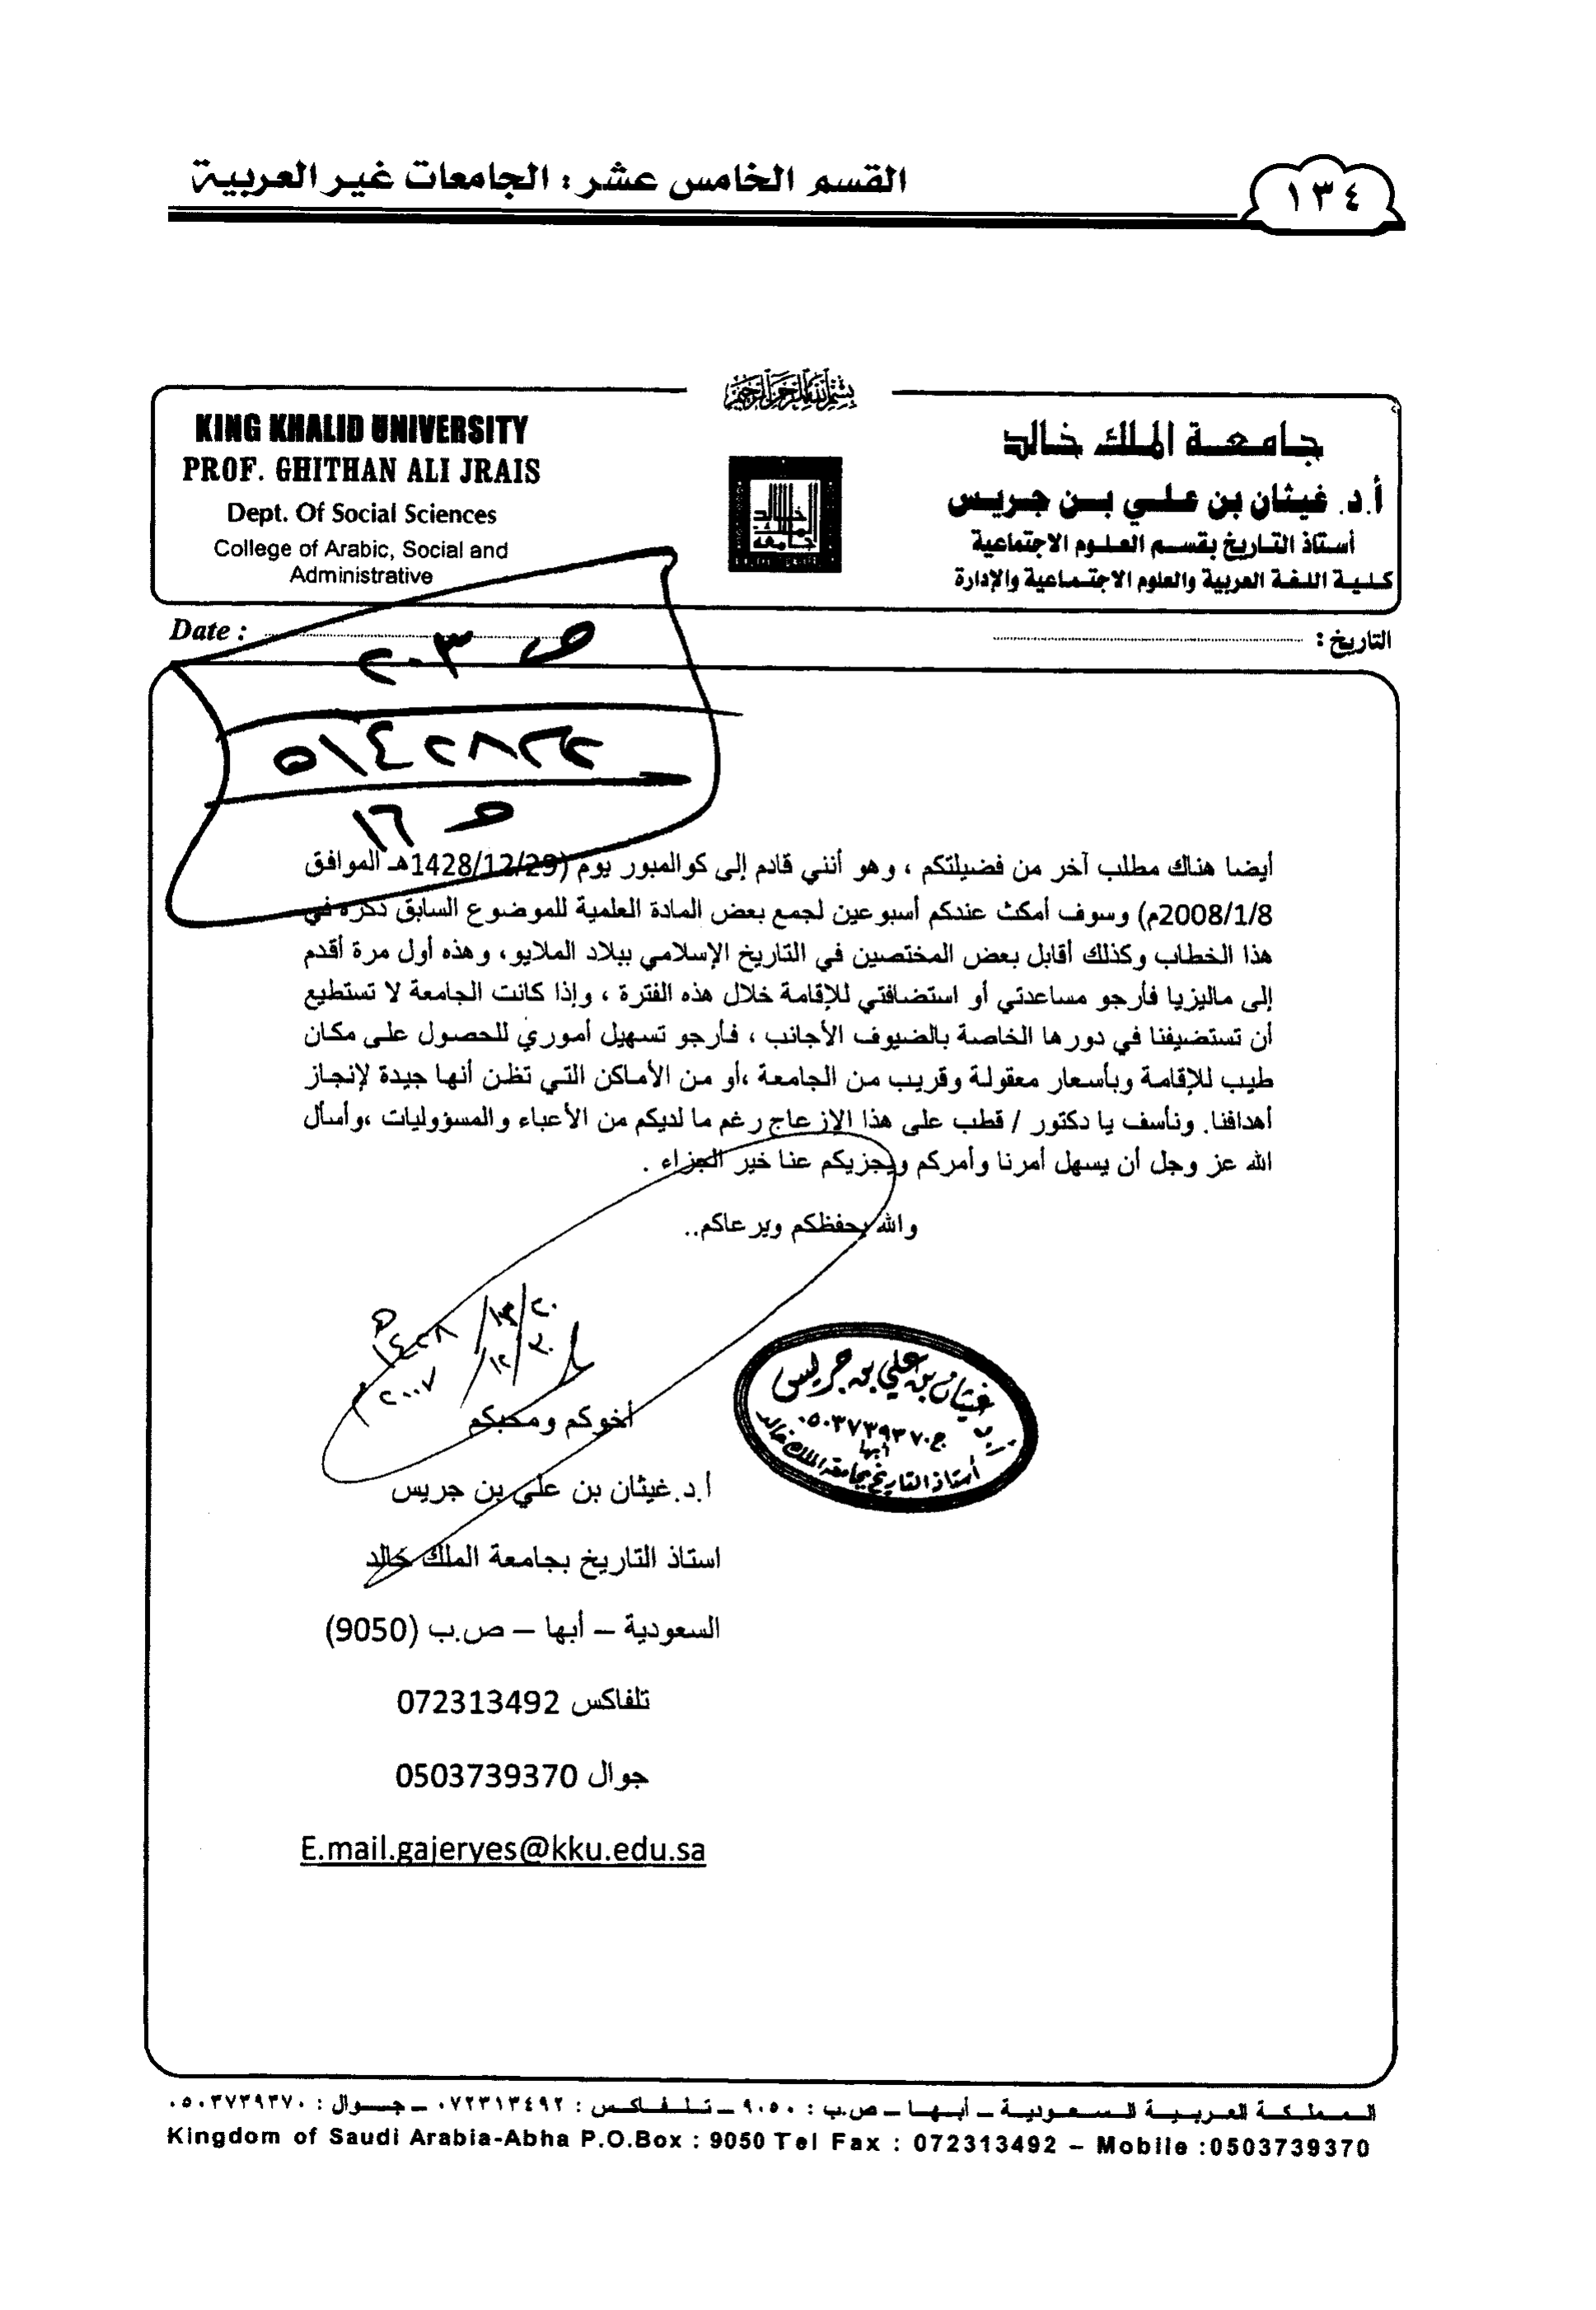 القسم الخامس عشر: الجامعات غير العربية
١٣٤
بسم الله الرحمن الرحيم
KING KHALID UNIVERSITY
PROF. GHITHAN ALI JRAIS
Dept. Of Social Sciences
College of Arabic, Social and
Administrative
جامعة الملك خالد
أ.د. غيثان بن علي بن جريس
أستاذ التاريخ بقسم العلوم الاجتماعية
كلية اللغة العربية والعلوم الاجتماعية والإدارة
Date :
التاريخ :
ص ٢٠٣
ص ١٦
أيضا هناك مطلب آخر من فضيلتكم ، وهو أنني قادم إلى كوالمبور يوم (1428/12/29هـ الموافق
2008/1/8م) وسوف أمكث عندكم أسبوعين لجمع بعض المادة العلمية للموضوع السابق ذكره في
هذا الخطاب وكذلك أقابل بعض المختصين في التاريخ الإسلامي ببلاد الملايو، وهذه أول مرة أقدم
إلى ماليزيا فأرجو مساعدتي أو استضافتي للإقامة خلال هذه الفترة ، وإذا كانت الجامعة لا تستطيع
أن تستضيفنا في دورها الخاصة بالضيوف الأجانب ، فأرجو تسهيل أموري للحصول على مكان
طيب للإقامة وبأسعار معقولة وقريب من الجامعة ،أو من الأماكن التي تظن أنها جيدة لإنجاز
أهدافنا. ونأسف يا دكتور / قطب على هذا الإزعاج رغم ما لديكم من الأعباء والمسؤوليات ،وأسأل
الله عز وجل أن يسهل أمرنا وأمركم ويجزيكم عنا خير الجزاء .
والله يحفظكم ويرعاكم..
١٤٢٨ هـ
٢٠٠٧ م
أخوكم ومحبكم
غيثان بن علي بن جريس
ج ٠٥٠٣٧٣٩٣٧٠
أبها
أستاذ التاريخ بجامعة الملك خالد
أ.د.غيثان بن علي بن جريس
استاذ التاريخ بجامعة الملك خالد
السعودية – أبها – ص.ب (9050)
تلفاكس 072313492
جوال 0503739370
E.mail.gajeryes@kku.edu.sa
المملكة العربية السعودية - أبها - ص.ب : ٩٠٥٠ - تلفاكس : ٠٧٢٣١٣٤٩٢ - جوال : ٠٥٠٣٧٣٩٣٧٠
Kingdom of Saudi Arabia-Abha P.O.Box : 9050 Tel Fax : 072313492 – Mobile :0503739370